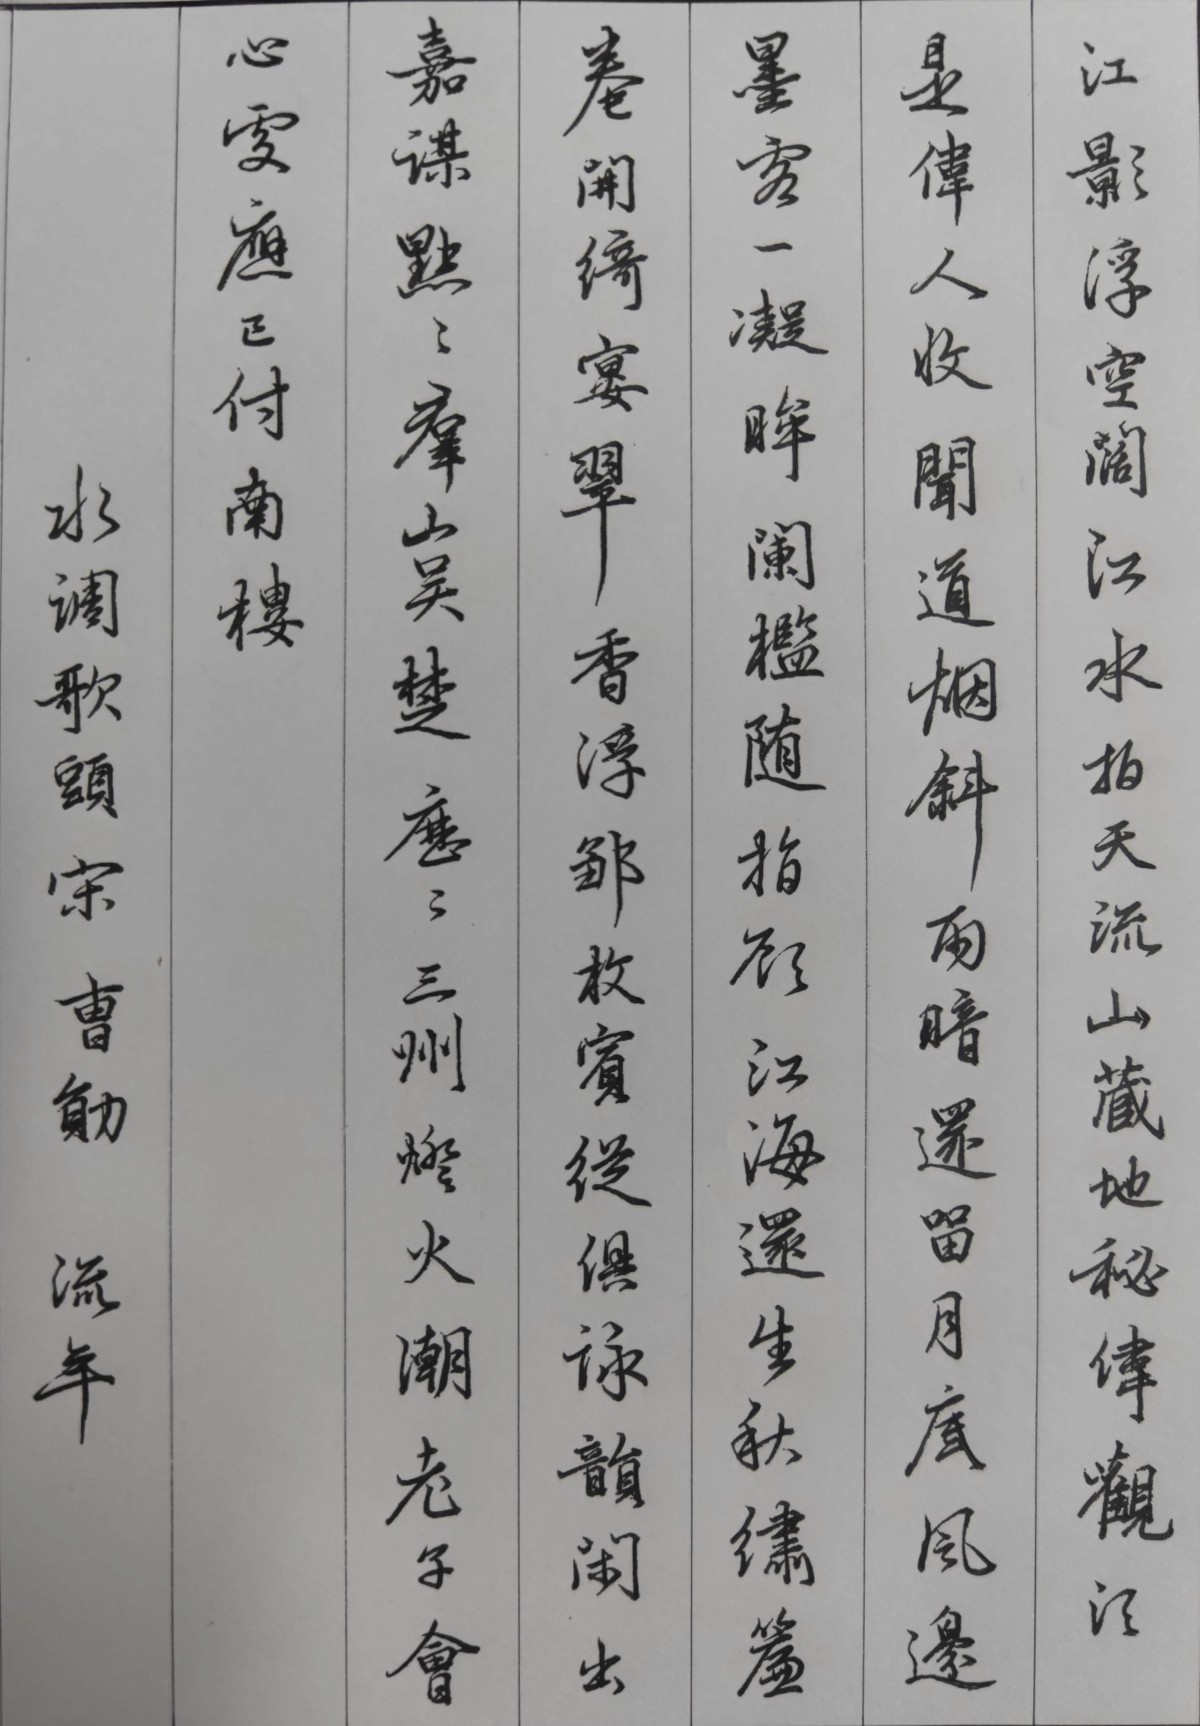 江影浮空闊江水拍天流山藏地秘偉觀須
是偉人收聞道烟斜雨暗還留月底風邊
墨客一凝眸闌檻随指顾江海還生秋繡簾
卷開綺宴翠香浮鄒枚賓從俱詠韻閑出
嘉謀點〻羣山吳楚歷〻三州燈火潮老子會
心處應已付南樓
水調歌頭宋曹勛 流年